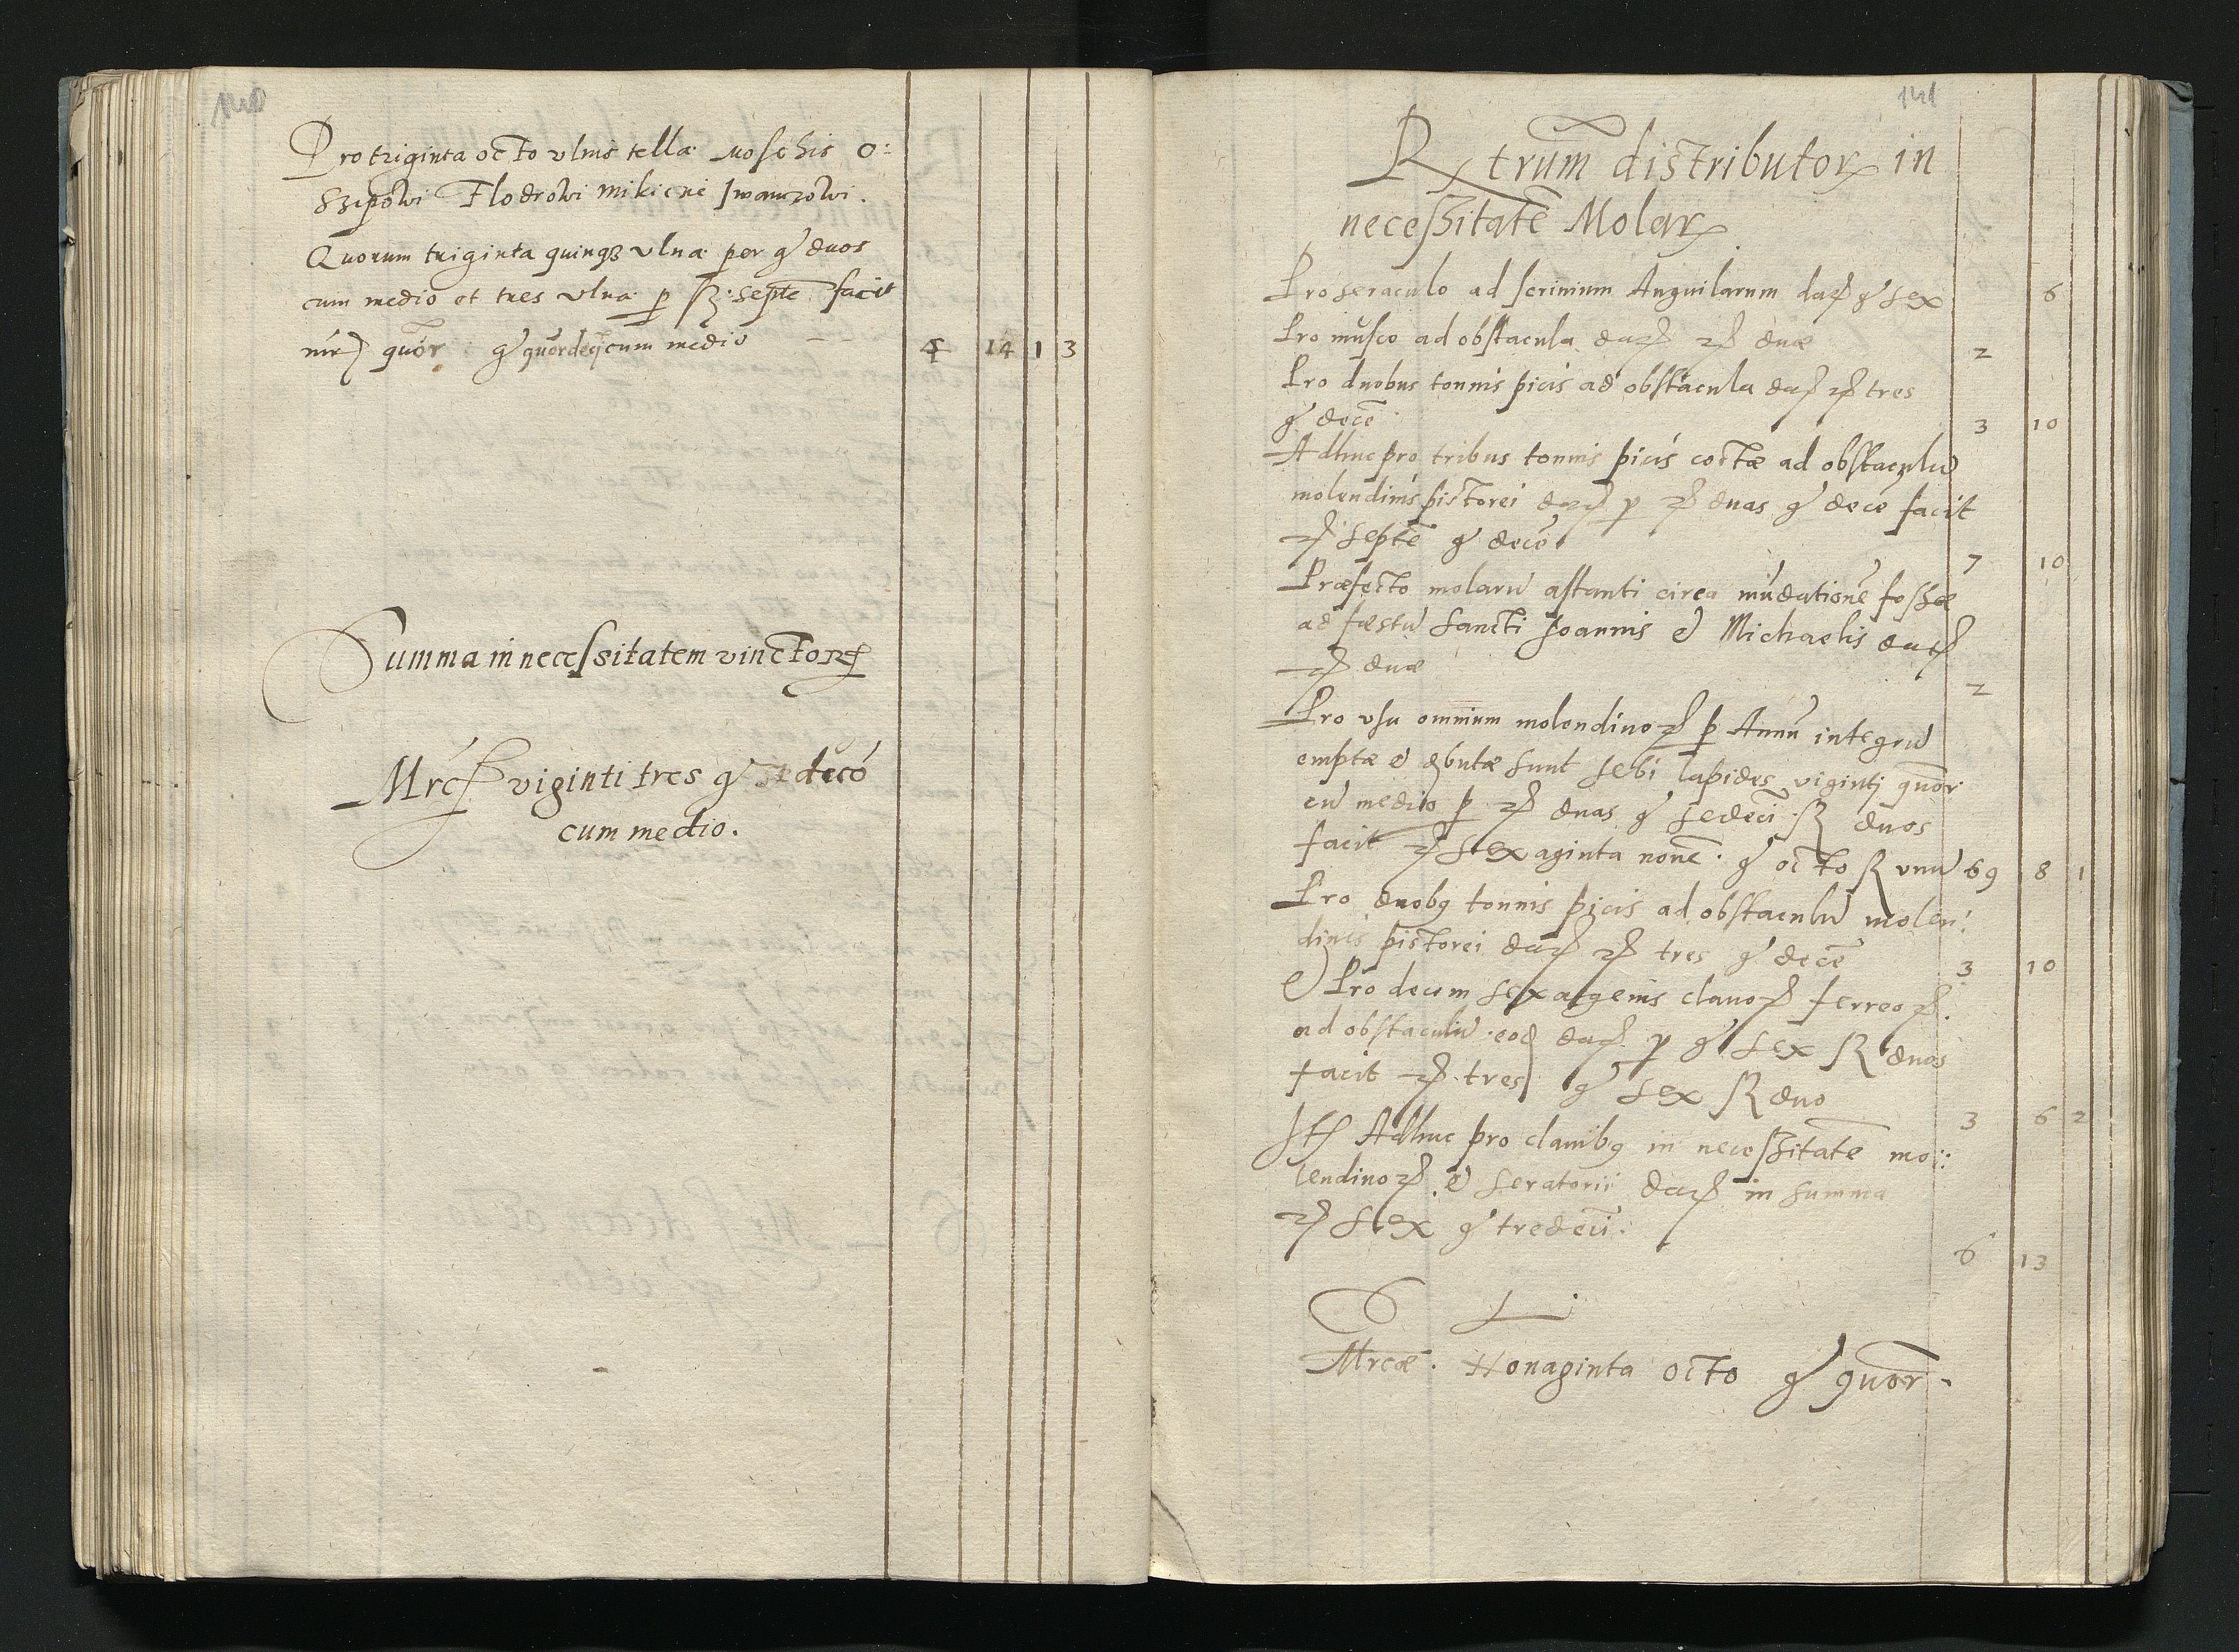 140
Pro triginta octo vlnis tella Moschis O:
Szipowi Flodrowi mikicie Iwanzowi.
Quorum triginta quinqꝫ vlna per gͬ duos
cum medio et tres vlna ꝑ ß: septē facit
mrc quōr gͬ quōrdeci cum medio 4 14 1 3
Summa in necessitatem vinctorꝝ
Mrcꝭ viginti tres gͬ decē
cum medio.
141
Rꝫtrum distributorꝝ in
necessitatē Molarꝝ
Pro seraculo ad scrinium Anguilarum datꝭ gͬ sex 6
Pro musco ad obstacula datꝭ mꝭ duæ 2
Pro duobus tonnis picis ad obstacula datꝭ mꝭ tres
gͬ decē 3 10
Adhuc pro tribus tonnis picis coctæ ad obstaculū
molendinis pistorei datꝭ ꝑ mꝭ duas gͬ decē facit
mꝭ septē gͬ decē 7 10
Præfecto molarū astanti circa mūdationē fossæ
ad fæstū Sancti Joannis & Michaelis datꝭ
mꝭ duæ 2
Pro vsu omnium molendinoꝝ ꝑ Annū integrū
emptæ & sunt sebi lapides viginti quōr
cū medio ꝑ mꝭ duas gͬ sedeci ß duos
facit mꝭ sexaginta nonē gͬ octo ß vnū 69 8 1
Pro duobꝯ tonnis picis ad obstaculū molen:
dinis pistorei datꝭ mꝭ tres gͬ decē 3 10
& Pro decem sexagenis clauoꝝ ferreoꝝ.
ad obstaculū eod datꝭ ꝑ gͬ sex ß duos
facit mꝭ tres gͬ sex ß duo 3 6 2
Itꝭ Adhuc pro clauibꝯ in necessitatē mo:
lendinoꝝ & seratorii datꝭ in summa
mꝭ sex gͬ tredeci. 6 13
Mrcæ. Nonaginta octo gͬ quōr.